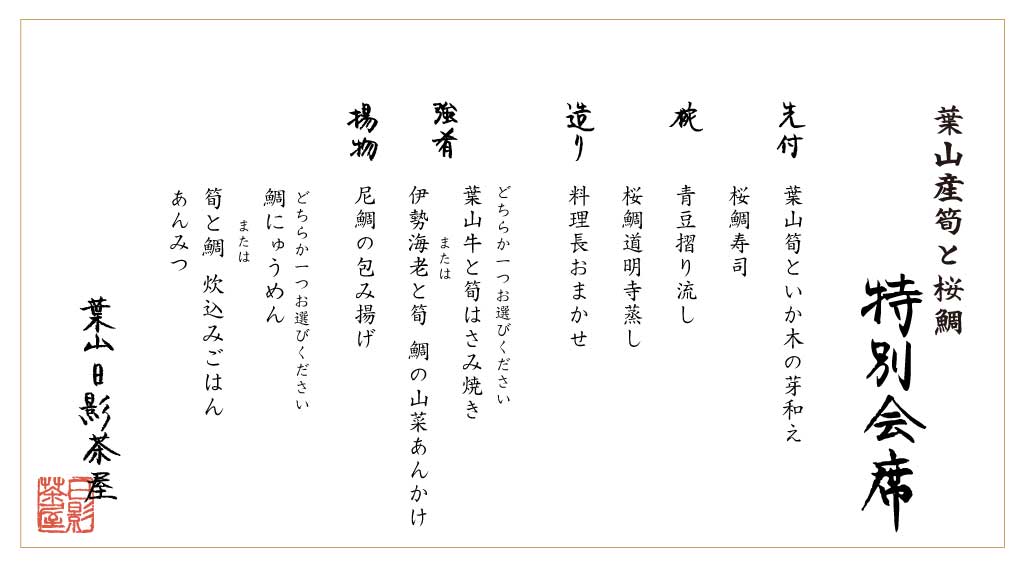 葉山産筍と桜鯛
特別会席
先付
葉山筍といか木の芽和え
桜鯛寿司
椀
青豆摺り流し
桜鯛道明寺蒸し
造り
料理長おまかせ
強肴
どちらか一つお選びください
葉山牛と筍はさみ焼き
または
伊勢海老と筍 鯛の山菜あんかけ
揚物
尼鯛の包み揚げ
どちらか一つお選びください
鯛にゅうめん
または
筍と鯛 炊込みごはん
あんみつ
葉山日影茶屋
日影
茶屋